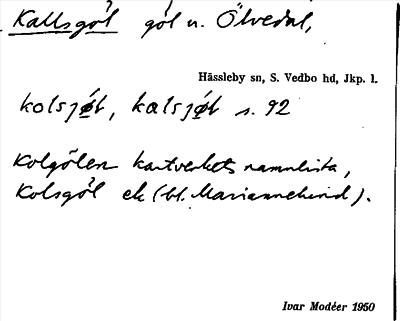 Kallsgöl göl n. Ölvedal,
Hässleby sn, S. Vedbo hd, Jkp. l.
kolsjøt, kalsjøt s. 92
Kolgölen kartverkets namnlista,
Kolsgöl ek (bl. Mariannelund).
Ivar Modéer 1950